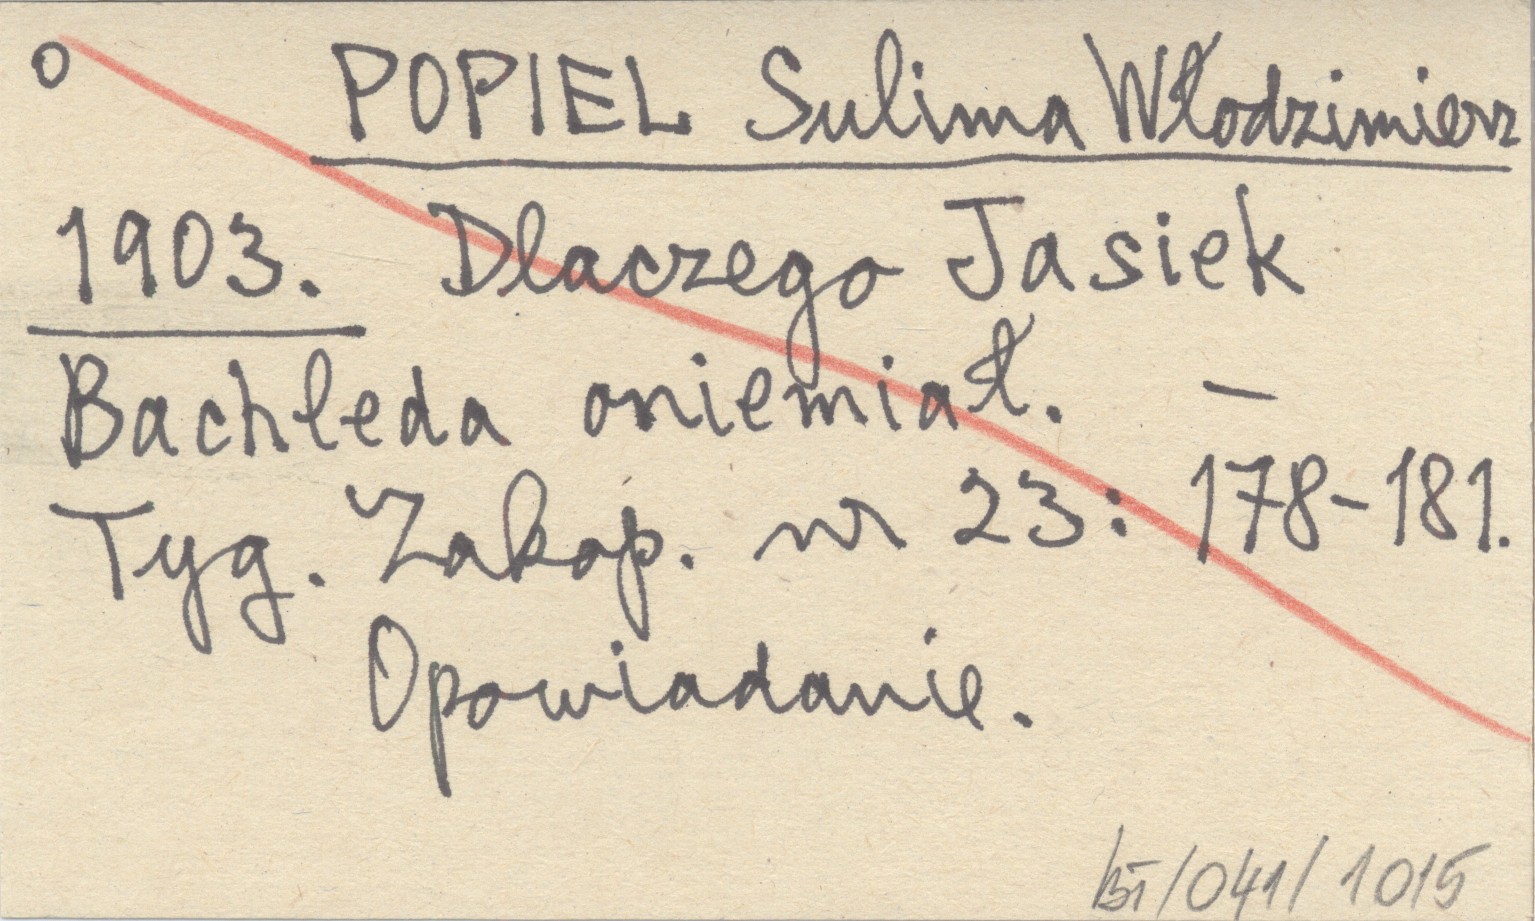 o POPIEL Sulima Włodzimierz
1903. Dlaczego Jasiek
Bachleda oniemiał. –
Tyg. Zakop. nr 23: 178-181.
Opowiadanie.
BT/041/1015